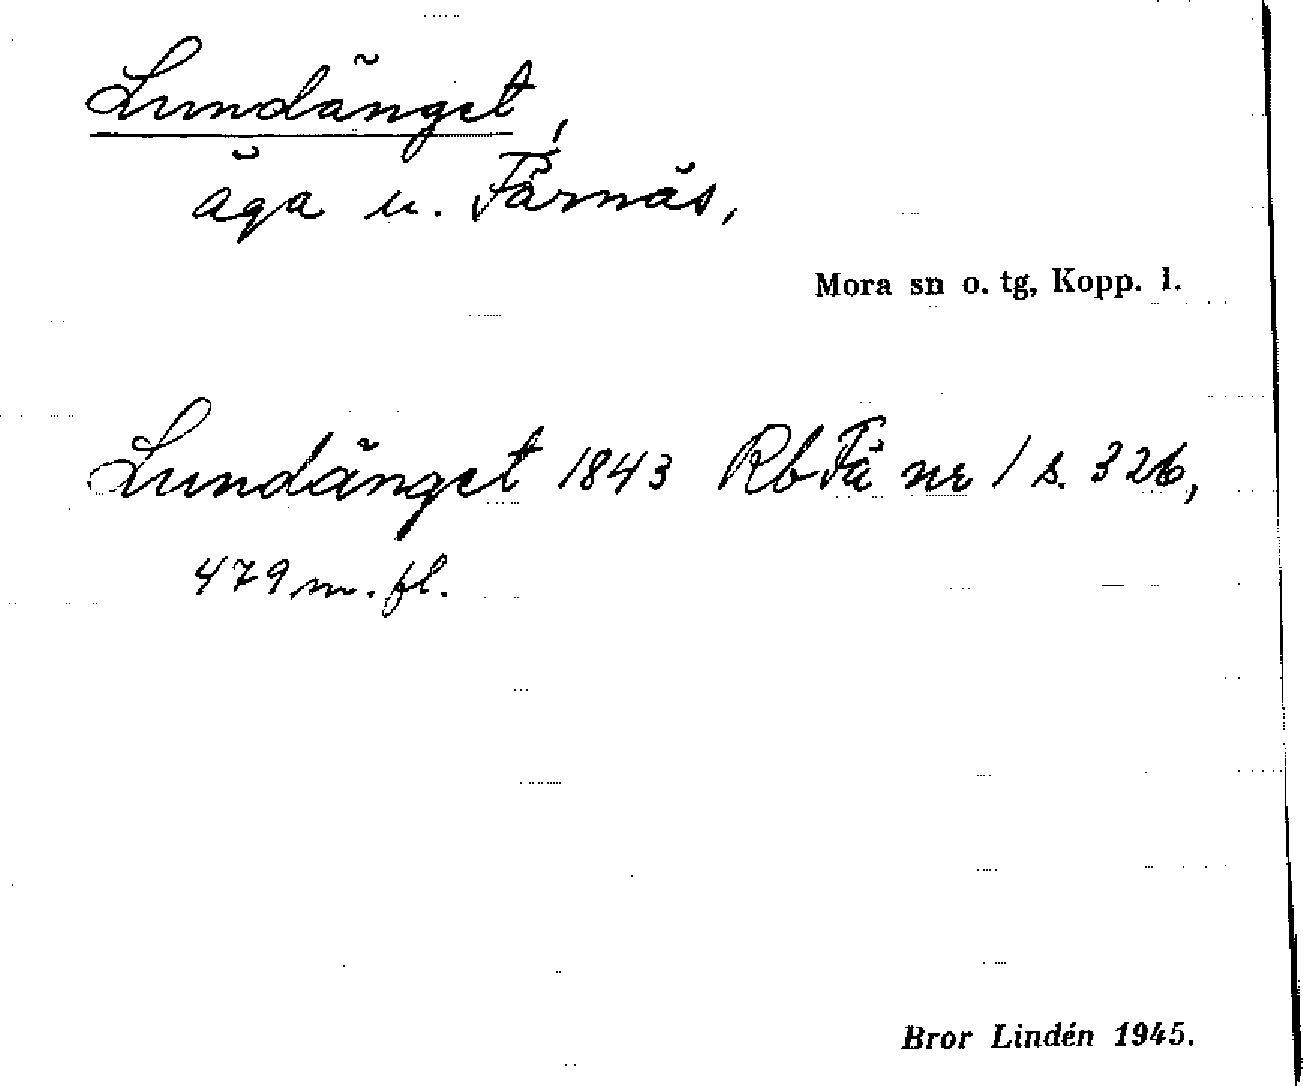 Lundänget,
äga u. Färnäs,
Mora sn o. tg, Kopp. l.
Lundänget 1843 Rb Fä nr 1 s. 326,
479 m. fl.
Bror Lindén 1945.